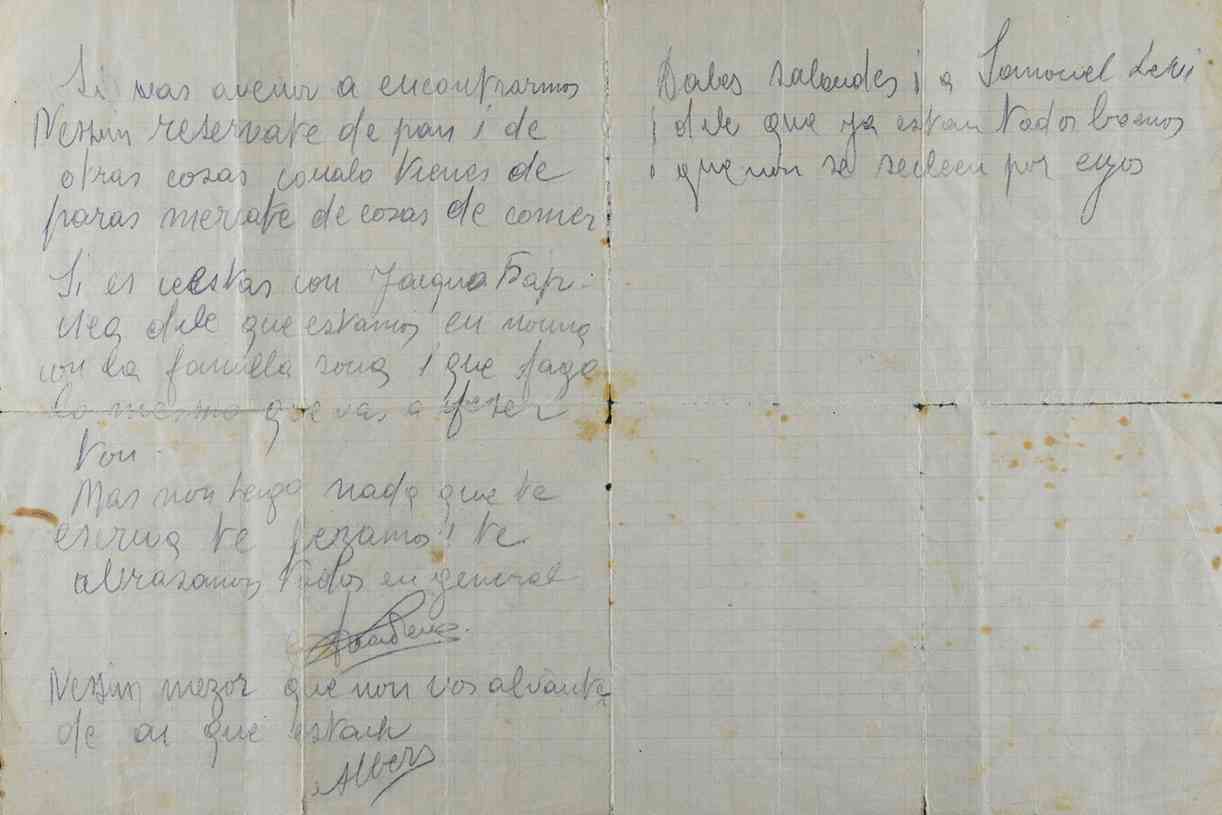 Si vas avenir a encontrarmos
Nessim reservate de pan i de
otras cozas coualo tienes de
paras mercate de cozas de comer
Si es ceestas con Jacquo
dile que estamos en
con la famiella i que faga
lo mesmo que vas a fazer
tou
Mas non tengo nada que te
escriva te bezamos i te
abrasamos todos en general
Nessim mezor que non vos alvante
de ai que estach
Albers
Dales saloudes i a Samouel Levi
i dile que ya estan todos boenos
i que non se por eyos